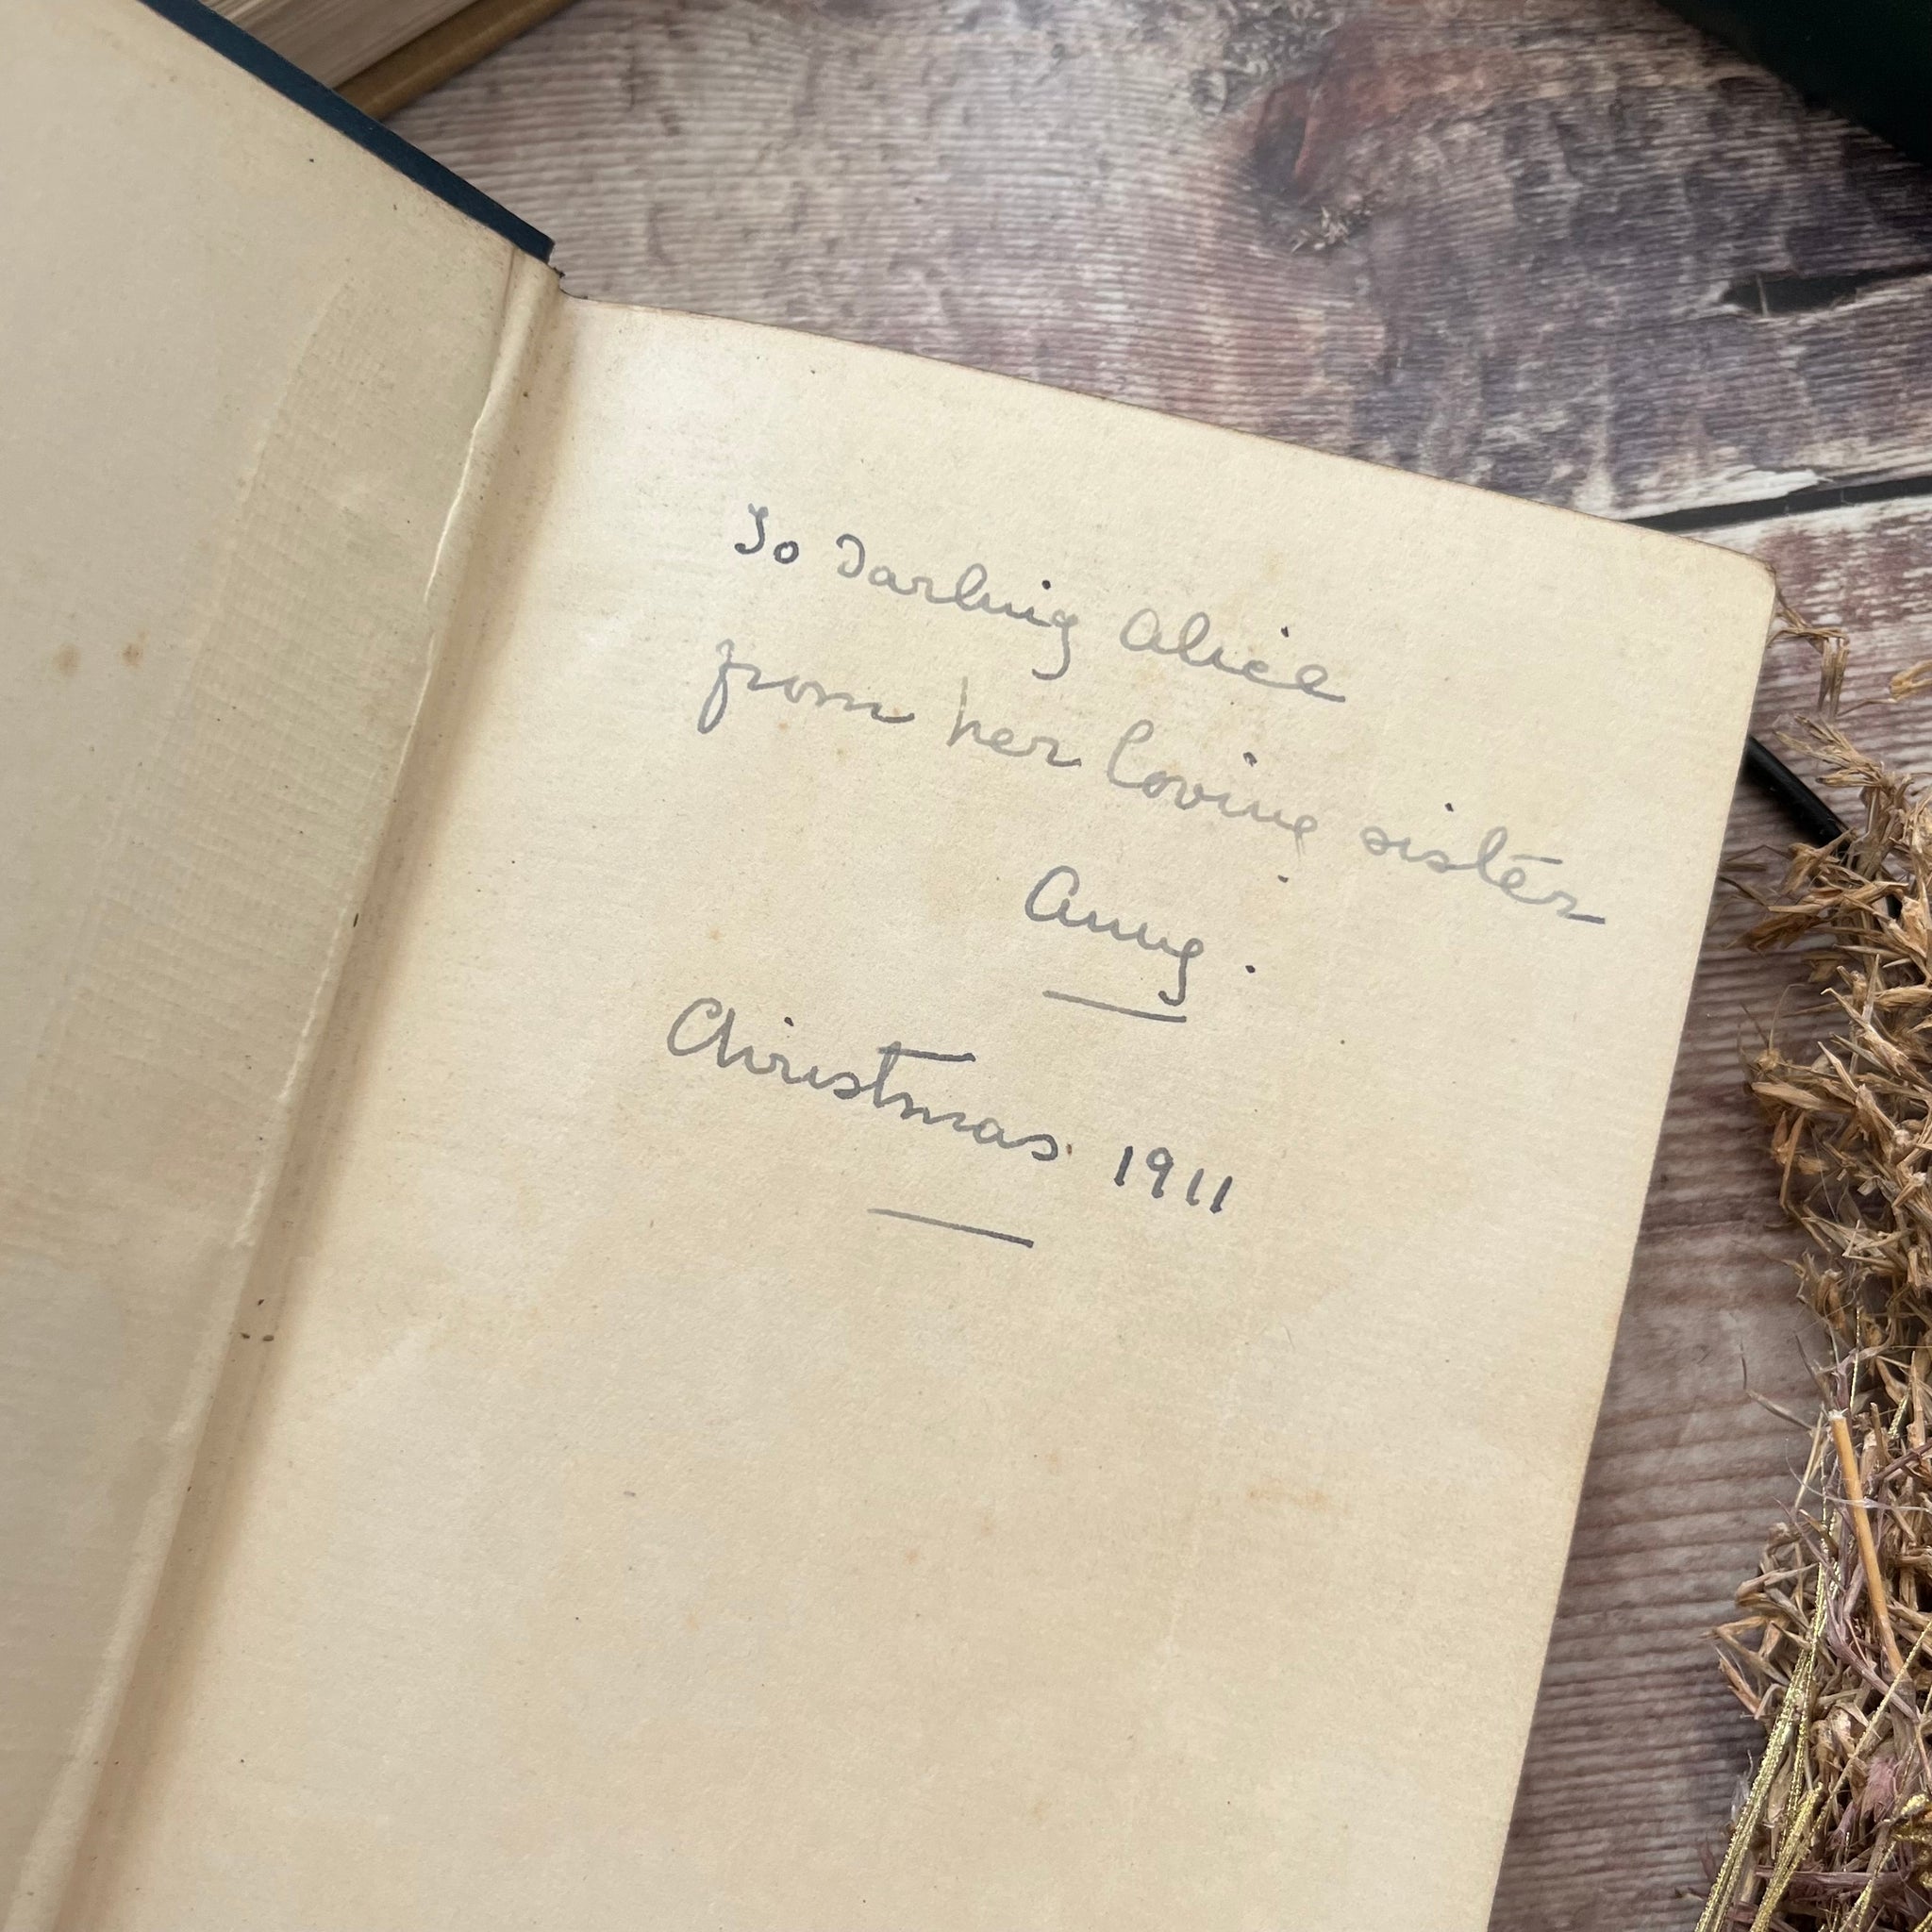 To Darling Alice
from her loving sister
Anny.
Christmas 1911